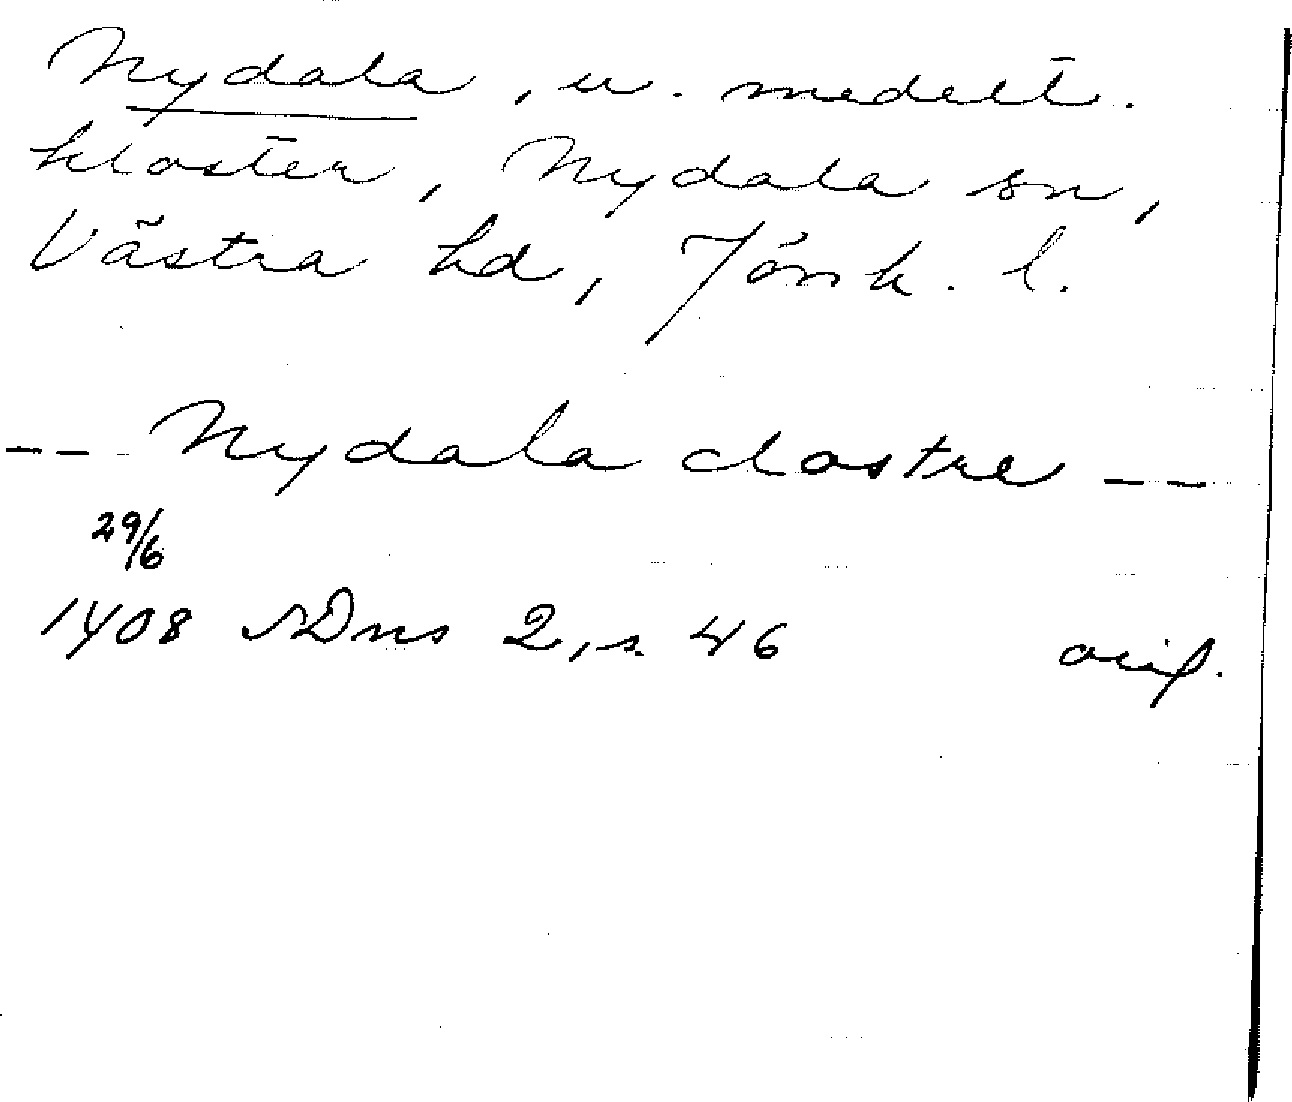 Nydala, u. medelt.
kloster, Nydala sn,
Västra hd, Jönk. l.
-- Nydala clostre --
29/6
1408 SDns 2, s. 46 orig.